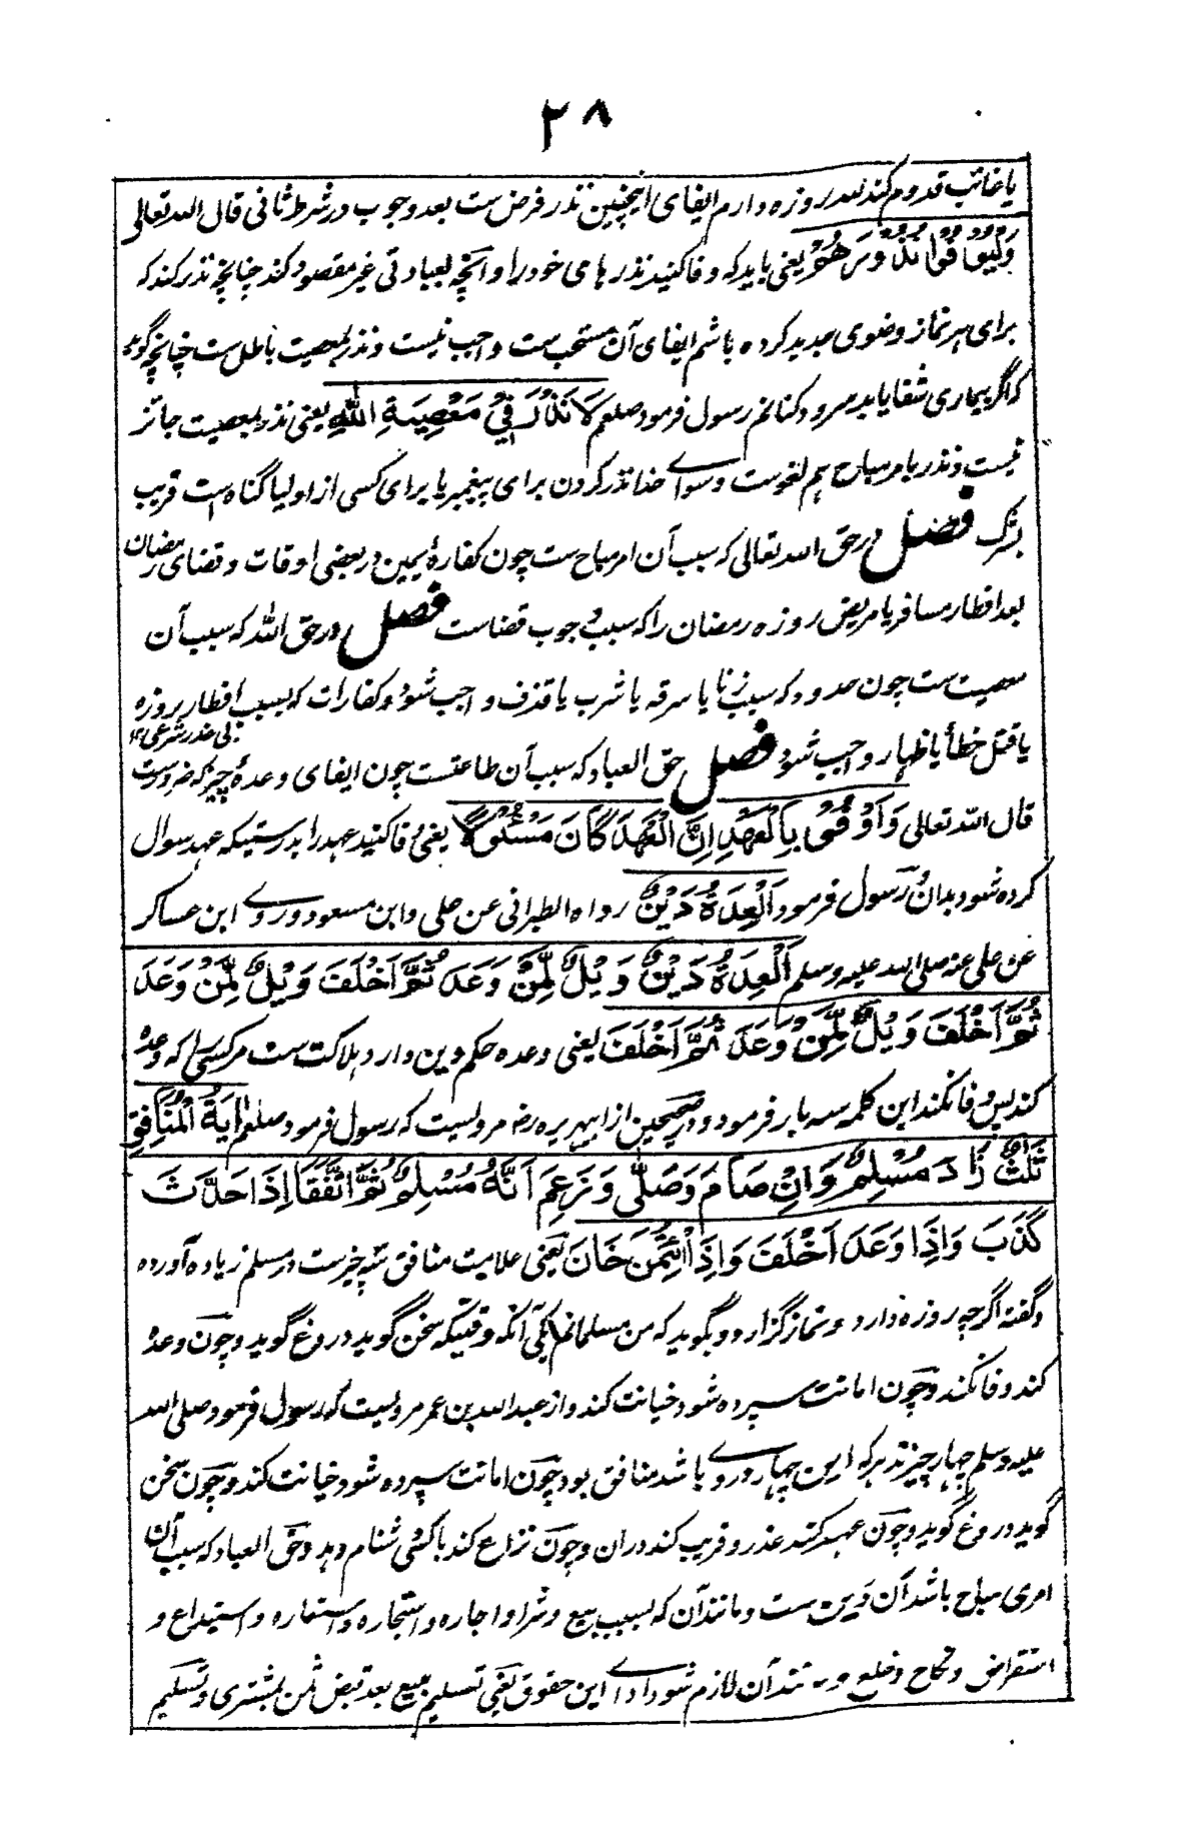 ۲۸
یا غائب قدوم کند لله روزه دارم ایفای اینچنین نذر فرض ست بعد وجوب در شرط ثانی قال الله تعالی
وَلْیُوْفُوْا نُذُوْرَهُمْ یعنی باید که وفا کنید نذر های خود را و آنچه بعبادتی غیر مقصود کند چنانچه نذر کند که
برای هر نماز وضوی جدید کرده باشم ایفای آن مستحب ست واجب نیست و نذر بمعصیت باطل ست چنانچه گوید
که اگر بیماری شفا یابد سرود کنانم رسول فرمود صلعم لَا نَذْرَ فِیْ مَعْصِیَةِ اللّٰهِ یعنی نذر بمعصیت جائز
نیست و نذر بامر مباح هم لغوست و سواے خدا نذر کردن برای پیغمبر یا برای کسی از اولیا گناه ست قریب
بشرک فصل در حق الله تعالی که سبب آن امر مباح ست چون کفارۂ یمین در بعضی اوقات و قضای رمضان
بعد افطار مسافر یا مریض روزه رمضان را که سبب وجوب قضاست فصل در حق الله که سبب آن
معصیت ست چون حدود که سبب زنا یا سرقه یا شرب یا قذف واجب شود و کفارات که بسبب افطار روزه
بی عذر شرعی ۱۲
یا قتل خطأ یا ظهار واجب شود فصل حق العباد که سبب آن طاعتست چون ایفای وعدۂ چیز که ضرورست
قال الله تعالی وَاَوْفُوْا بِالْعَهْدِ اِنَّ الْعَهْدَ کَانَ مَسْئُوْلًا یعنی وفا کنید عهد را بدرستیکه عهد سوال
کرده شود بدان رسول فرمود اَلْعِدَةُ دَیْنٌ رواه الطبرانی عن علی وابن مسعود و روے ابن عساکر
عن علی عنه صلی الله علیه وسلم اَلْعِدَةُ دَیْنٌ وَیْلٌ لِّمَنْ وَعَدَ ثُمَّ اَخْلَفَ وَیْلٌ لِّمَنْ وَعَدَ
ثُمَّ اَخْلَفَ وَیْلٌ لِّمَنْ وَعَدَ ثُمَّ اَخْلَفَ یعنی وعده حکم دین دارد هلاکت ست مر کسی را که وعدۂ
کند پس وفا نکند این کلمه سه بار فرمود و در صحیحین از ابی هریره رضه مرویست که رسول فرمود صلعم اٰیَةُ الْمُنَافِقِ
ثَلٰثٌ زَادَ مُسْلِمٌ وَاِنْ صَامَ وَصَلّٰی وَزَعِمَ اَنَّهُ مُسْلِمٌ ثُمَّ اتَّفَقَا اِذَا حَدَّثَ
کَذَبَ وَاِذَا وَعَدَ اَخْلَفَ وَاِذَا ائْتُمِنَ خَانَ یعنی علامت منافق سه چیزست و مسلم زیاده آورده
و گفته اگرچه روزه دارد و نماز گزارد و بگوید که من مسلمانم یکی آنکه وقتیکه سخن گوید دروغ گوید و چون وعدۂ
کند وفا نکند و چون امانت سپرده شود خیانت کند و از عبدالله بن عمر مرویست که رسول فرمود صلی الله
علیه وسلم چهار چیزند هرکه این چهار در وے باشد منافق بود چون امانت سپرده شود خیانت کند و چون سخن
گوید دروغ گوید و چون عهد کند عذر و فریب کند دران و چون نزاع کند با کسی شنام دهد و حق العباد که سبب آن
امری مباح باشد آن دَین ست و مانند آن که بسبب بیع و شرا و اجاره و استجاره و استعاره و استیداع و
استقراض و نکاح و خلع و مانند آن لازم شود اداے این حقوق یعنی تسلیم مبیع بعد قبض ثمن بمشتری و تسلیم